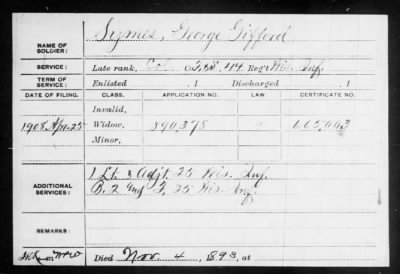 Symes, George Gifford
NAME OF SOLDIER:
SERVICE: Late rank, Col. 44 Reg't Wis. Inf.
TERM OF SERVICE: Enlisted , 1 Discharged , 1
DATE OF FILING. CLASS. APPLICATION NO. LAW CERTIFICATE NO.
Invalid,
1908 Apr. 25 Widow, 890,378
Minor,
1 Lt. & Adjt. 25 Wis. Inf.
ADDITIONAL SERVICES: B. 2 25 Wis. Inf.
REMARKS:
Died Nov. 4, 1893, at